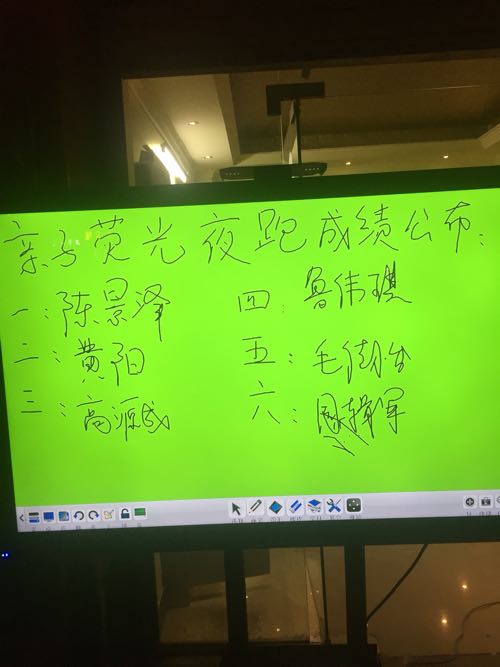 亲子荧光夜跑成绩公布:
一:陈景泽
二:黄阳
三:高源成
四:鲁伟琪
五:毛
六: